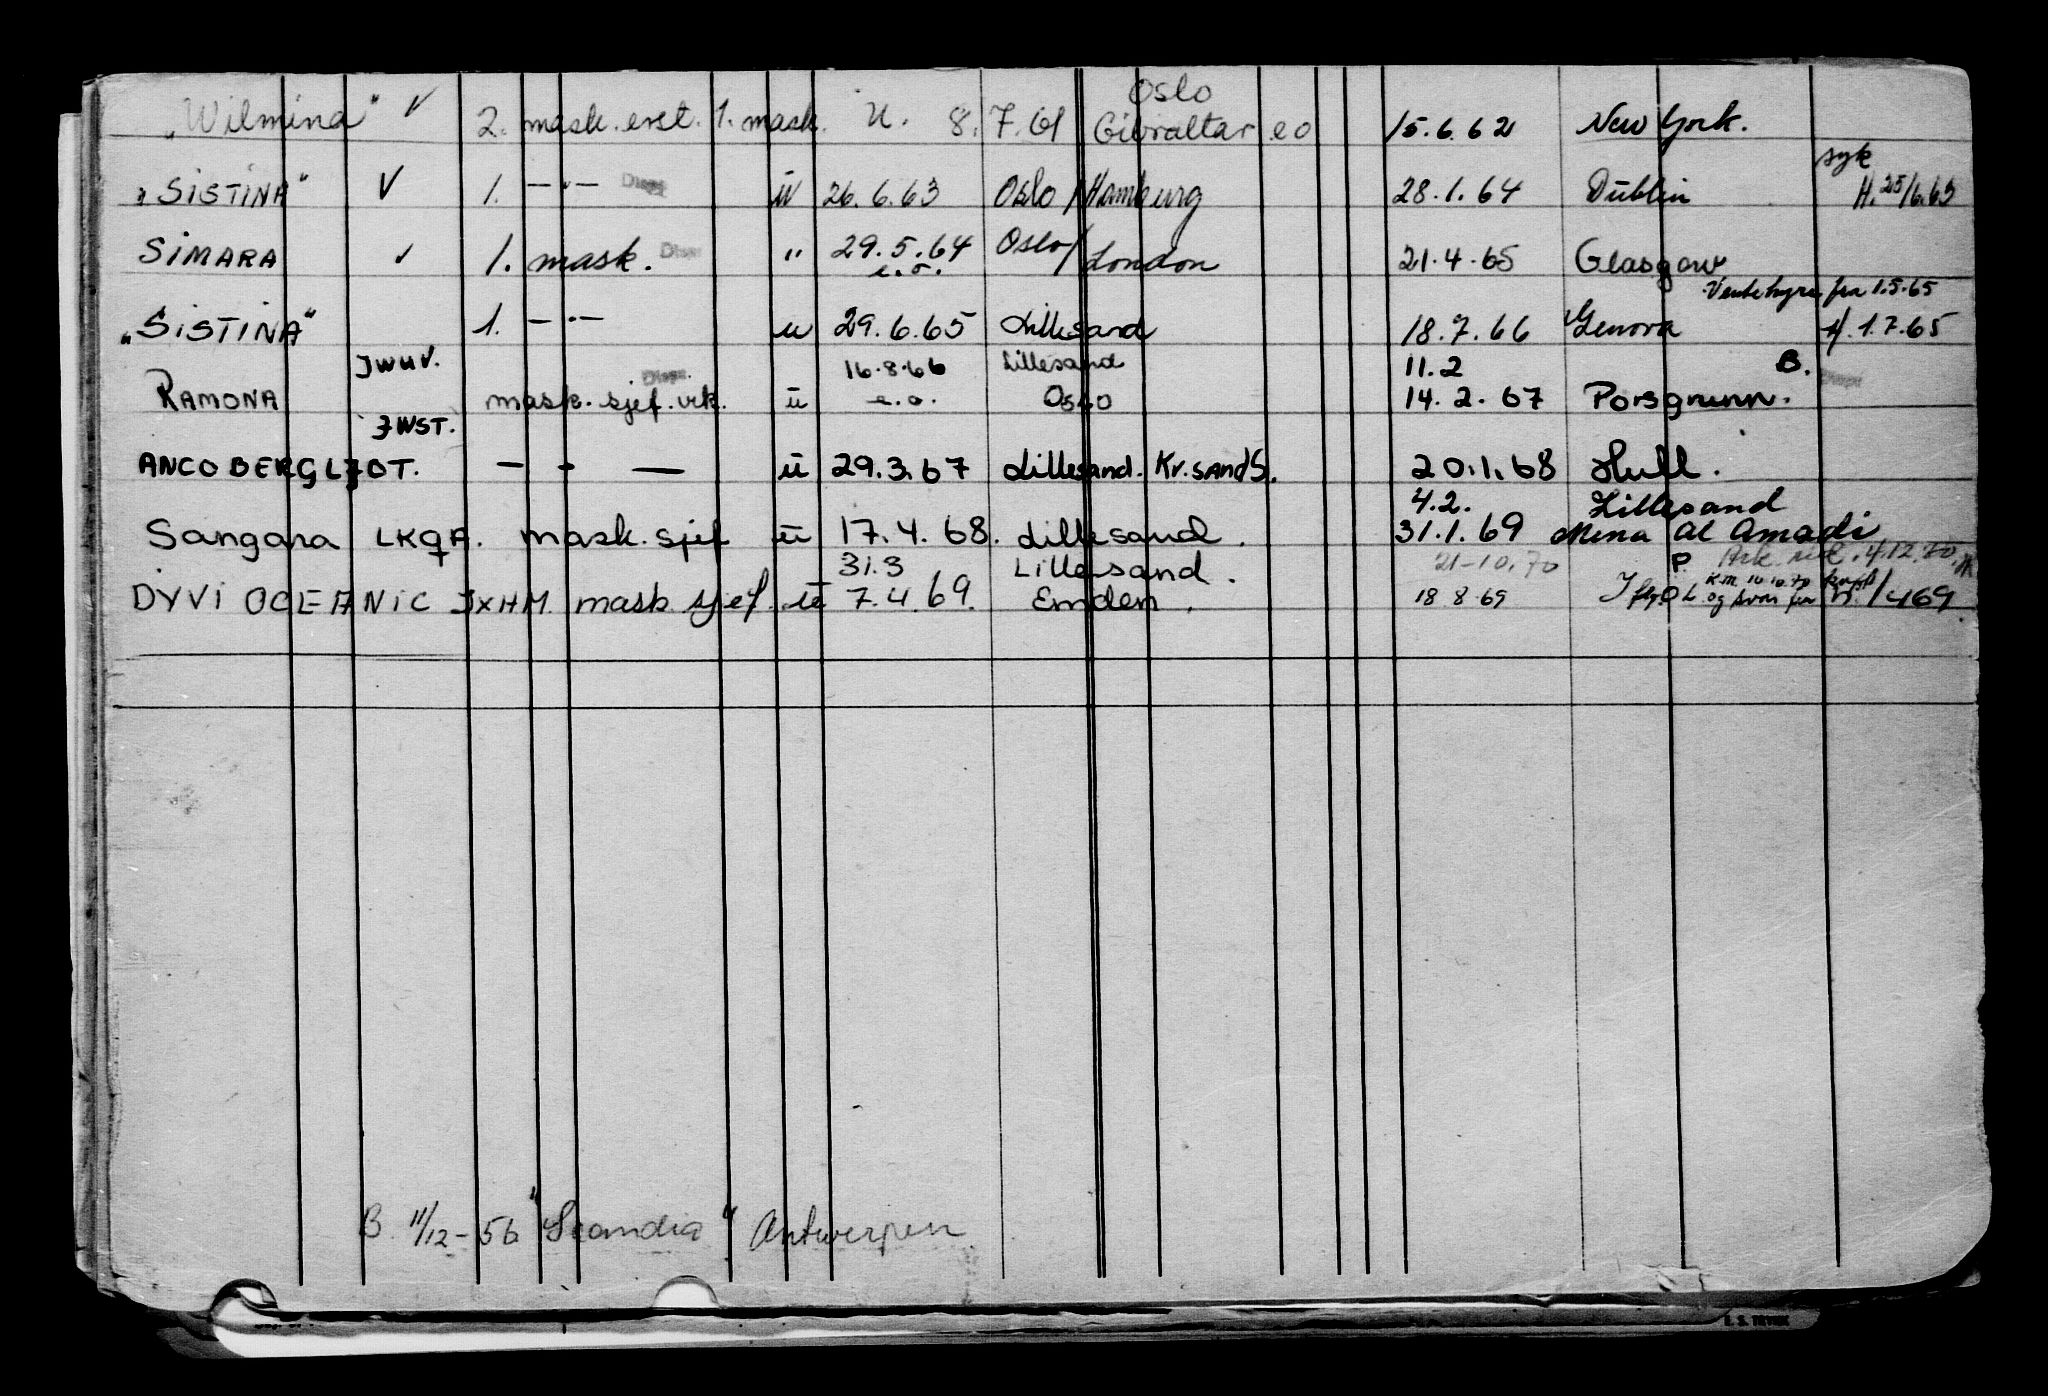 Oslo
"Wilmina" V 2. mask. erst. 1. mask. u. 8.7.61 Gibraltar eo 15.6.62 New York.
syk
"SISTINA" V 1. —"— Disp. u 26.6.63 Oslo/Hamburg 28.1.64 Dublin H. 25/6.63
SIMARA ✓ 1. mask. Disp. " 29.5.64 Oslo/London 21.4.65 Glasgow
e.o.
Ventehyre fra 1.5.65
"SISTINA" 1. —"— u 29.6.65 Lillesand 18.7.66 Genova 1/. 1.7.65
JWUV. Disp. 16.8.66 Lillesand 11.2 B.
RAMONA mask. sjef. vik. u e.o. Oslo 14.2.67 Porsgrunn.
JWST.
ANCO BERGLJOT. — " — u 29.3.67 Lillesand. Kr.sand S. 20.1.68 Hull.
4.2. Lillesand
Sangara LKQA. mask. sjef u 17.4.68. Lillesand. 31.1.69 Mena Al Amadi
31.3 Lillesand. 21-10.70 P 4.12.70
DYVI OCEANIC JXHM. mask. sjef. u 7.4.69. Emden. 18.8.69 og svar fra 1/469
B. 11/12-56 "Scandia" Antwerpen